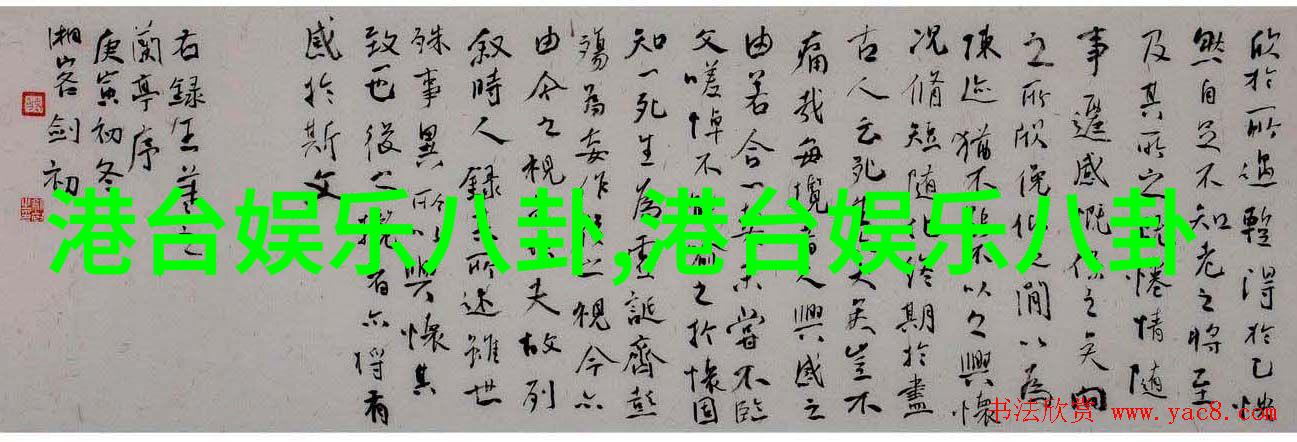 欣於所遇暫得於己快
然自足不知老之將至
及其所之既倦情隨
事遷感慨係之矣向
之所欣俛仰之間以為
陳迹猶不能不以之興懷
況脩短隨化終期於盡
古人云死生亦大矣豈不
痛哉每攬昔人興感之
由若合一契未嘗不臨
文嗟悼不能喻之於懷固
知一死生為虛誕齊彭
殤為妄作後之視今亦
由今之視昔悲夫故列
敘時人錄其所述雖世
殊事異所以興懷其
致一也後之攬者亦將有
感於斯文
右錄王羲之
蘭亭序
庚寅初冬
湘客劍初
港台娱乐八卦,港台娱乐八卦
书法欣赏 www.yac8.com